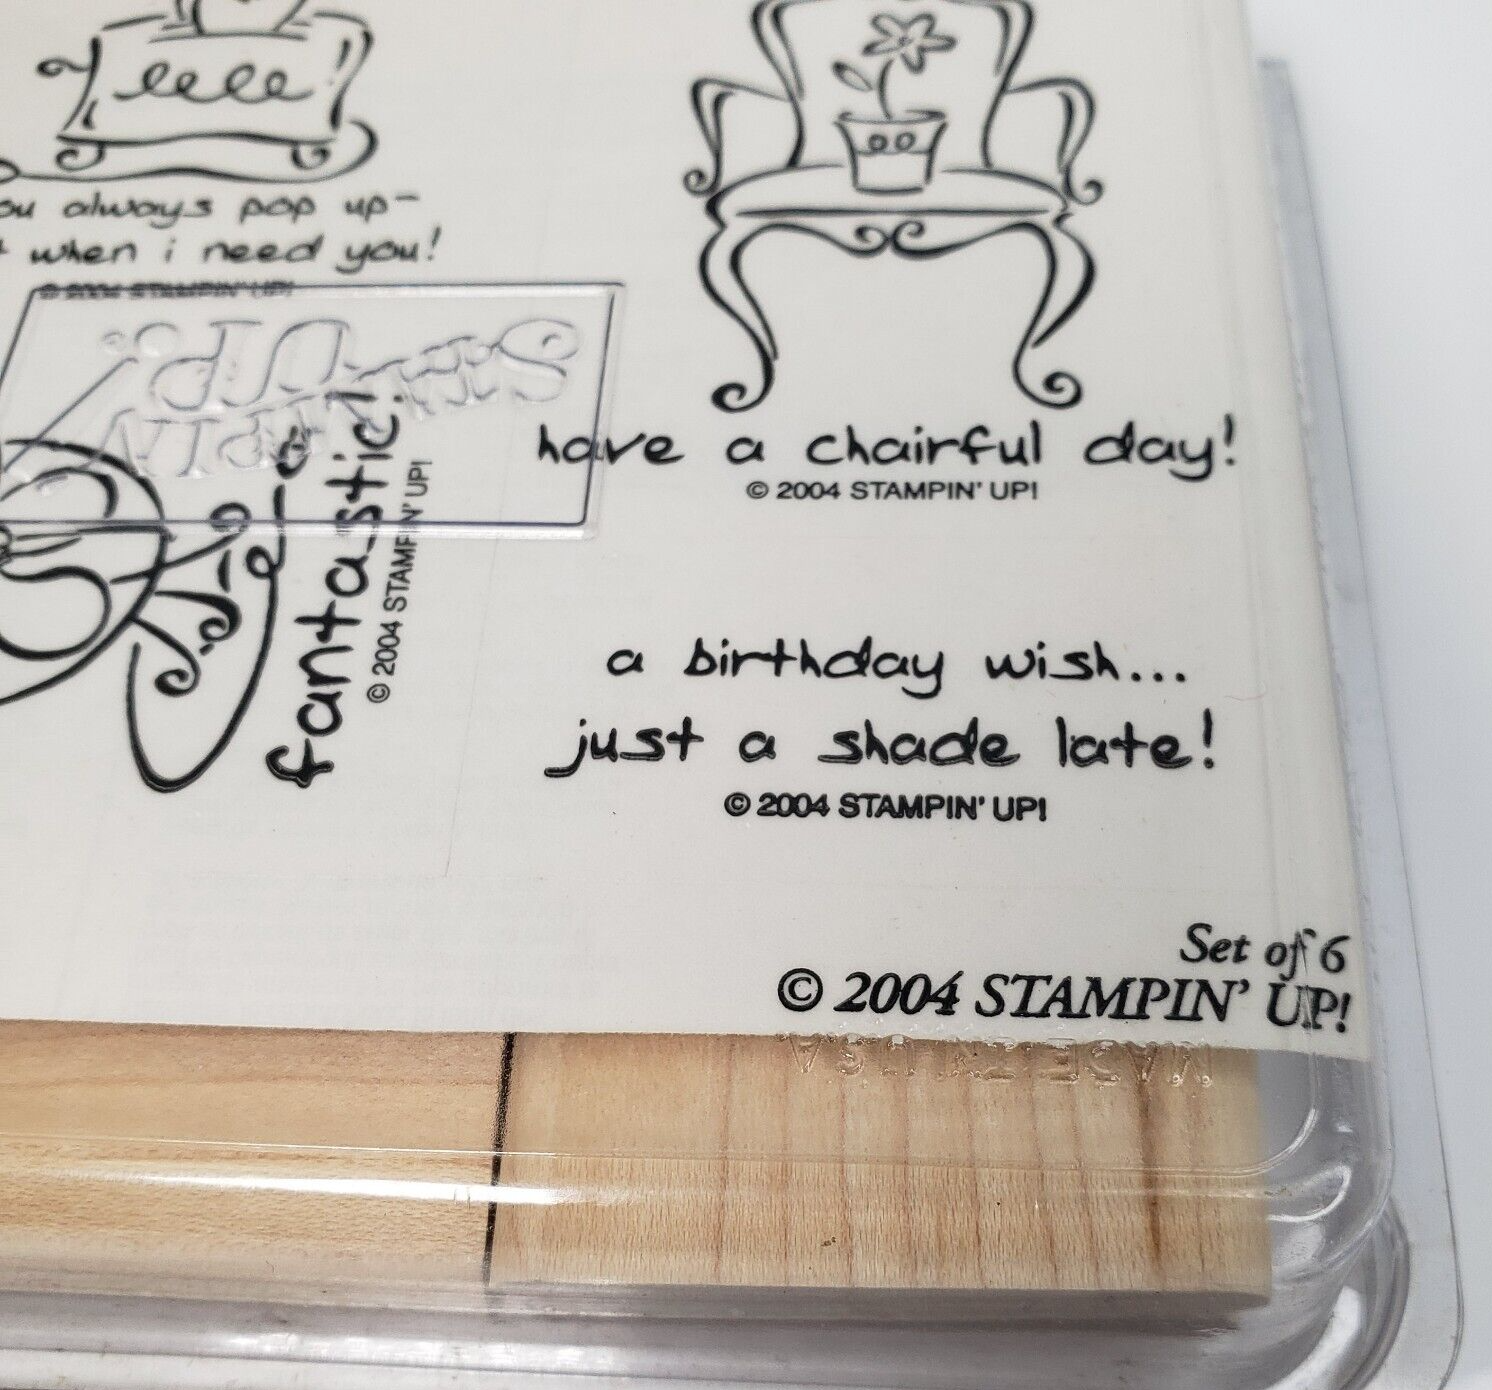 always pop up-
when i need you!
© 2004 STAMPIN' UP!
STAMPIN'
UP!
fantastic!
© 2004 STAMPIN' UP!
have a chairful day!
© 2004 STAMPIN' UP!
a birthday wish...
just a shade late!
© 2004 STAMPIN' UP!
Set of 6
© 2004 STAMPIN' UP!
MADE IN USA